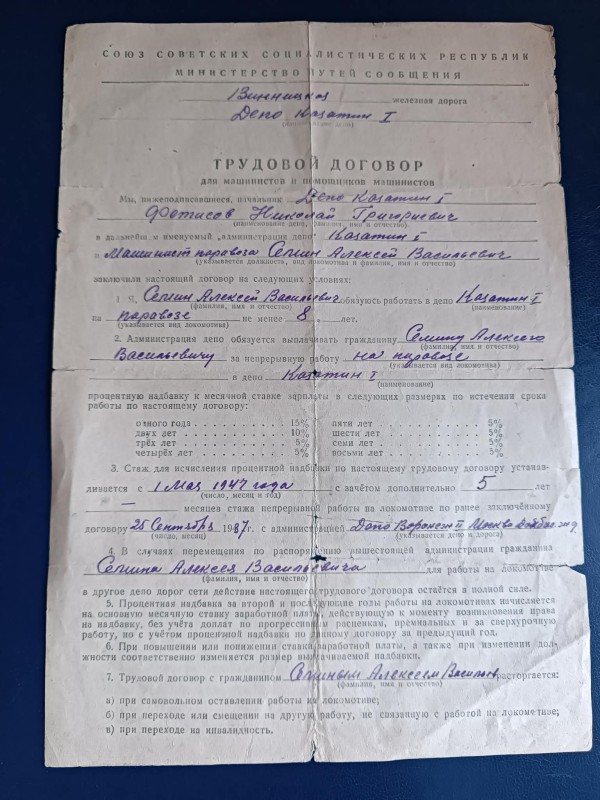 СОЮЗ СОВЕТСКИХ СОЦИАЛИСТИЧЕСКИХ РЕСПУБЛИК
МИНИСТЕРСТВО ПУТЕЙ СООБЩЕНИЯ
Винницкая железная дорога
Депо Казатин I
ТРУДОВОЙ ДОГОВОР
для машинистов и помощников машинистов
Мы, нижеподписавшиеся, начальник Депо Казатин I
Фотисов Николай Григориевич
(наименование депо, фамилия, имя и отчество)
в дальнейшем именуемый „администрация депо" Казатин I
и Машинист паровоза Семин Алексей Васильевич
(указывается должность, вид локомотива и фамилия, имя и отчество)
заключили настоящий договор на следующих условиях:
1. Я, Семин Алексей Васильевич обязуюсь работать в депо Казатин I
(фамилия, имя и отчество) (наименование)
на паровозе не менее 8 лет.
(указывается вид локомотива)
2. Администрация депо обязуется выплачивать гражданину Семину Алексею
(фамилия, имя и отчество)
Васильевичу за непрерывную работу на паровозе
(указывается вид локомотива)
в депо Казатин I
(наименование)
процентную надбавку к месячной ставке зарплаты в следующих размерах по истечении срока
работы по настоящему договору:
одного года . . . . . . . . . . 15% пяти лет . . . . . . . . . . 5%
двух лет . . . . . . . . . . 10% шести лет . . . . . . . . . . 5%
трёх лет . . . . . . . . . . 5% семи лет . . . . . . . . . . 5%
четырёх лет . . . . . . . . . . 5% восьми лет . . . . . . . . . . 5%
3. Стаж для исчисления процентной надбавки по настоящему трудовому договору устанав-
ливается с 1 Мая 1947 года с зачётом дополнительно 5 лет
(число, месяц и год)
— месяцев стажа непрерывной работы на локомотиве по ранее заключённому
договору 25 Сентября 1937 г. с администрацией Депо Воронеж II Москва Донбас. жд
(число, месяц) (указывается депо и дорога)
4. В случаях перемещения по распоряжению вышестоящей администрации гражданина
Семина Алексея Васильевича для работы на локомотиве
(фамилия, имя и отчество)
в другое депо дорог сети действие настоящего трудового договора остаётся в полной силе.
5. Процентная надбавка за второй и последующие годы работы на локомотивах исчисляется
на основную месячную ставку заработной платы, действующую к моменту возникновения права
на надбавку, без учёта доплат по прогрессивным расценкам, премиальных и за сверхурочную
работу, но с учётом процентной надбавки по данному договору за предыдущий год.
6. При повышении или понижении ставки заработной платы, а также при изменении дол-
жности соответственно изменяется размер выплачиваемой надбавки.
7. Трудовой договор с гражданином Семиным Алексеем Васильев расторгается:
(фамилия, имя и отчество)
а) при самовольном оставлении работы на локомотиве;
б) при переходе или смещении на другую работу, не связанную с работой на локомотиве;
в) при переходе на инвалидность.